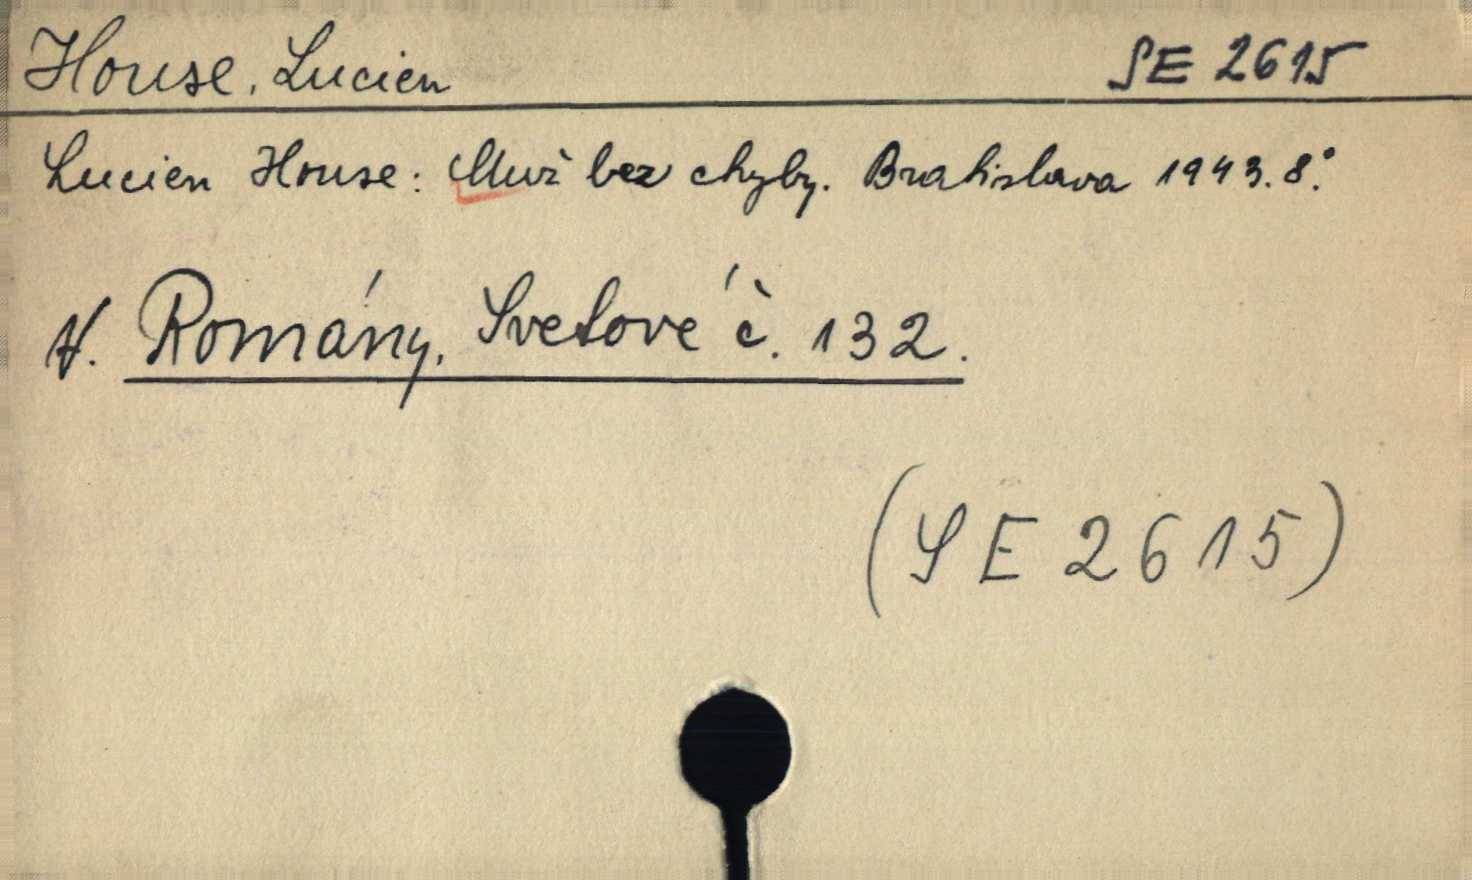 House, Lucien SE 2615
Lucien House: Muž bez chyby. Bratislava 1943. 8°.
V. Romány, Svetové č. 132.
(SE 2615)